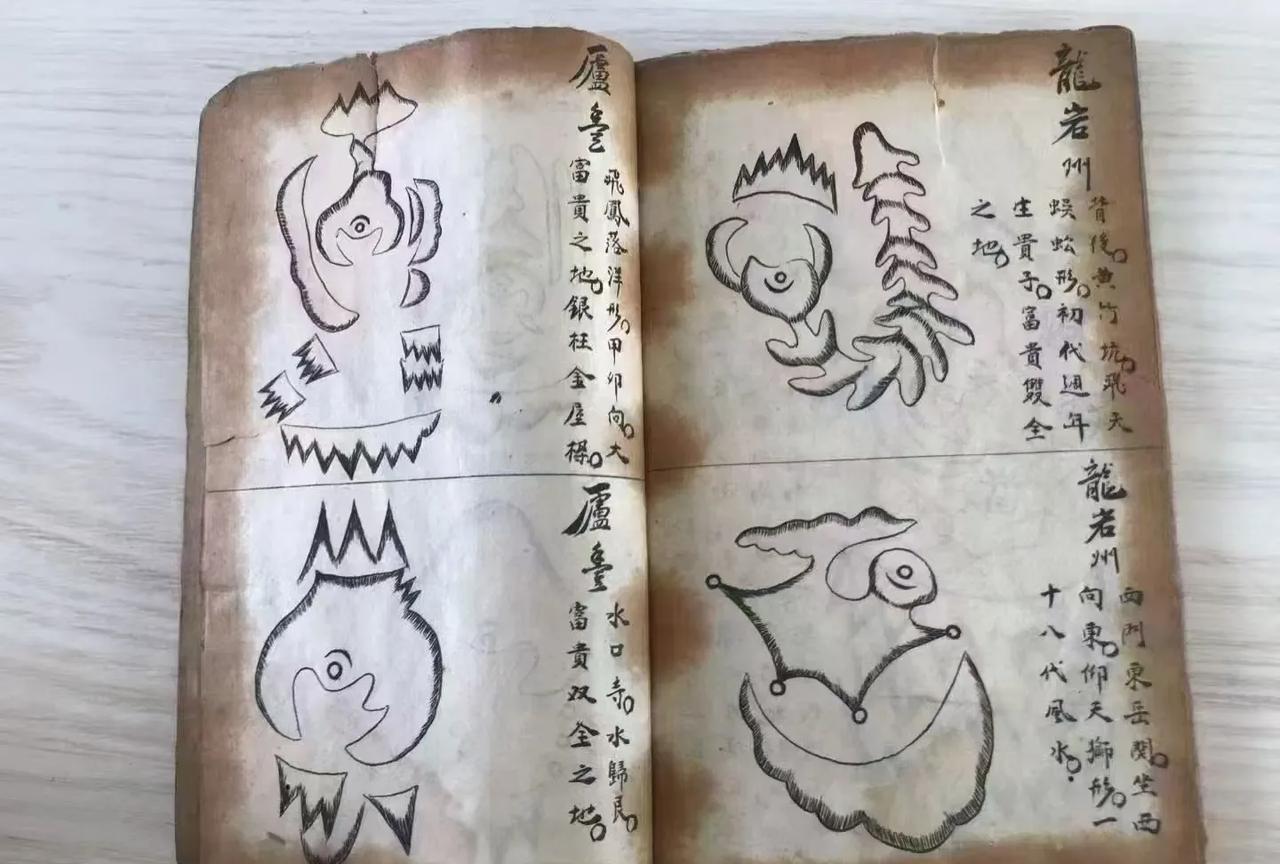 龍岩州
背後。黄竹坑。飛天
蜈蚣形。初代週年
生貴子。富貴雙全
之地。
龍岩州
西門東岳関。坐西
向東。仰天獅形。一
十八代風水。
廬豊
飛鳳落洋形。甲卯向。大
富貴之地。銀柱金屋樑。
廬豊
水口寺。水歸艮。
富貴双全之地。